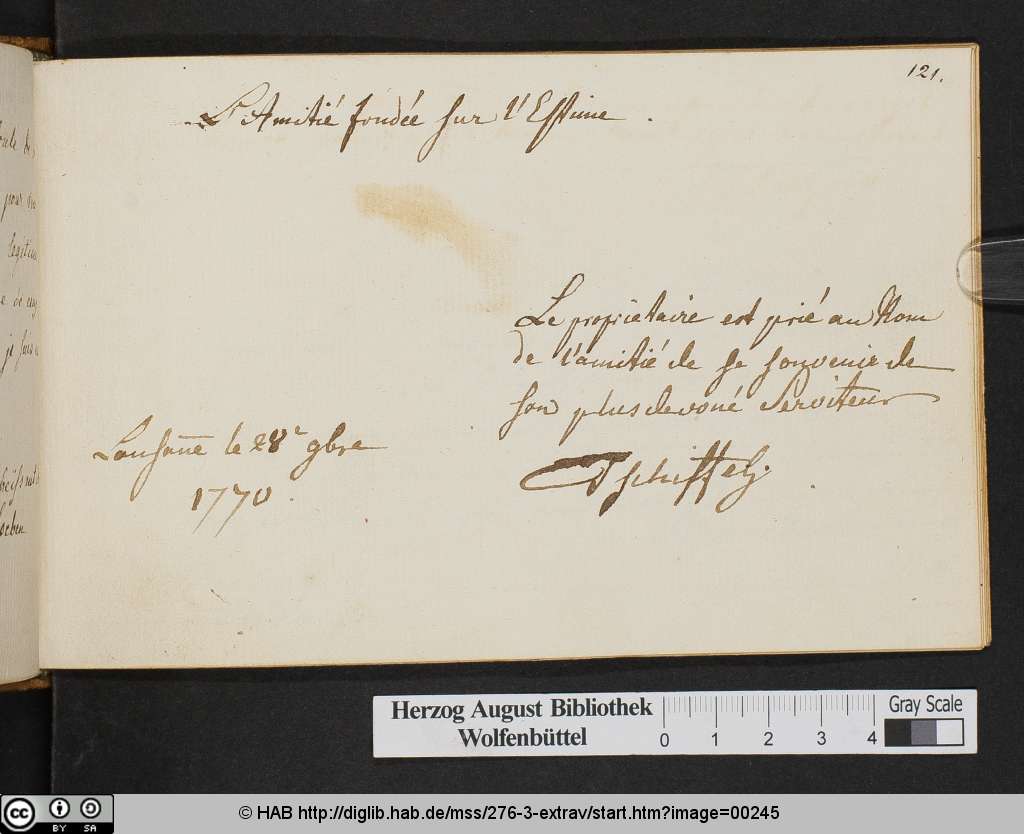 121.
L'Amitié fondée sur l'Estime .
Le proprietaire est prié au Nom
de l'amitié de se souvenir de
son plus devoué Serviteur
Tschiffely.
Lausañe le 28e 9bre
1770.
pour
Herzog August Bibliothek
Wolfenbüttel
0 1 2 3 4
Gray Scale
cc BY SA
© HAB http://diglib.hab.de/mss/276-3-extrav/start.htm?image=00245